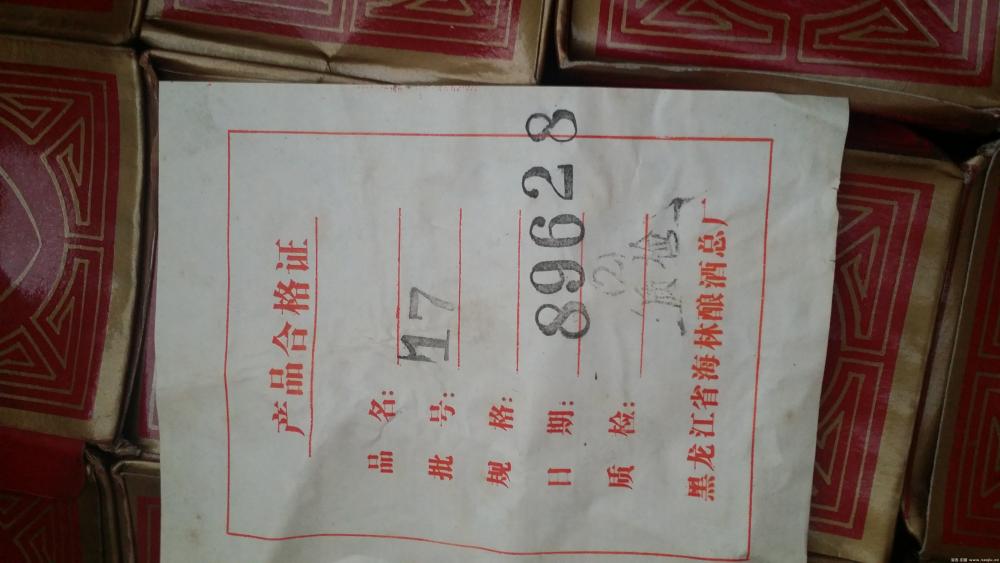 产品合格证
品名:
批号: 17
规格:
日期: 89628
质检: (2) 质检
黑龙江省海林酿酒总厂